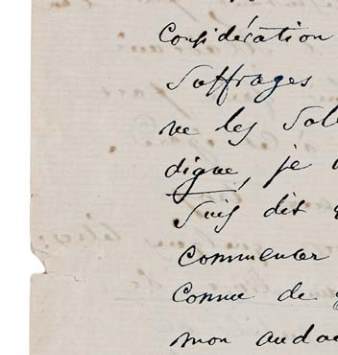 Considération
Suffrages
ne les Sol
digne, je
Suis dit
Commencer
Comme de
mon audac